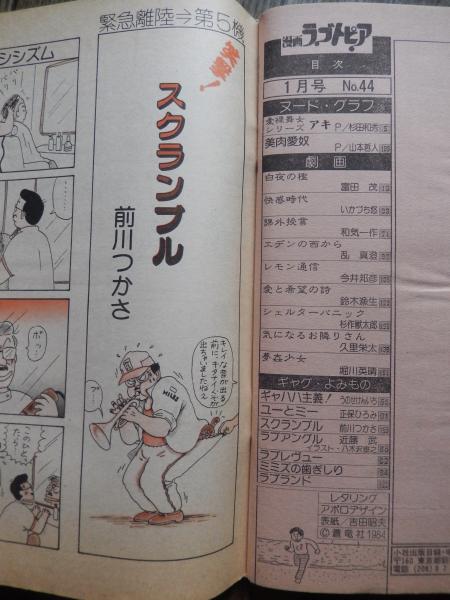 緊急離陸⇒第5機
シシズム
笑撃!
スクランブル
前川つかさ
キレイな音が出る
前に、キタナイ
出ちゃいましたねェ
ポッ
漫画ラブトピア
目次
1月号 No.44
ヌード・グラフ
シリーズ アキ P/杉田和秀
美肉愛奴
P/山本哲人
劇画
白夜の極
富田 茂
快感時代
いかづち悠
課外授言
和気一作
エデンの西から
乱 真澄
レモン通信
今井邦彦
愛と希望の詩
鈴木漁生
シェルターパニック
杉作獣太郎
気になるお隣りさん
久里栄太
夢姦少女
堀川英晴
ギャグ・よみもの
ギャハハ主義! うのせけんいち
ユーとミー 正保ひろみ
スクランブル 前川つかさ
ラブアングル 近藤 武
イラスト・八木沢康之
ラブレヴュー
ミミズの歯ぎしり
ラブランド
レタリング
アポロデザイン
表紙/吉田昭夫
©蒼竜社1984
〒160 東京都新
電話 (208)